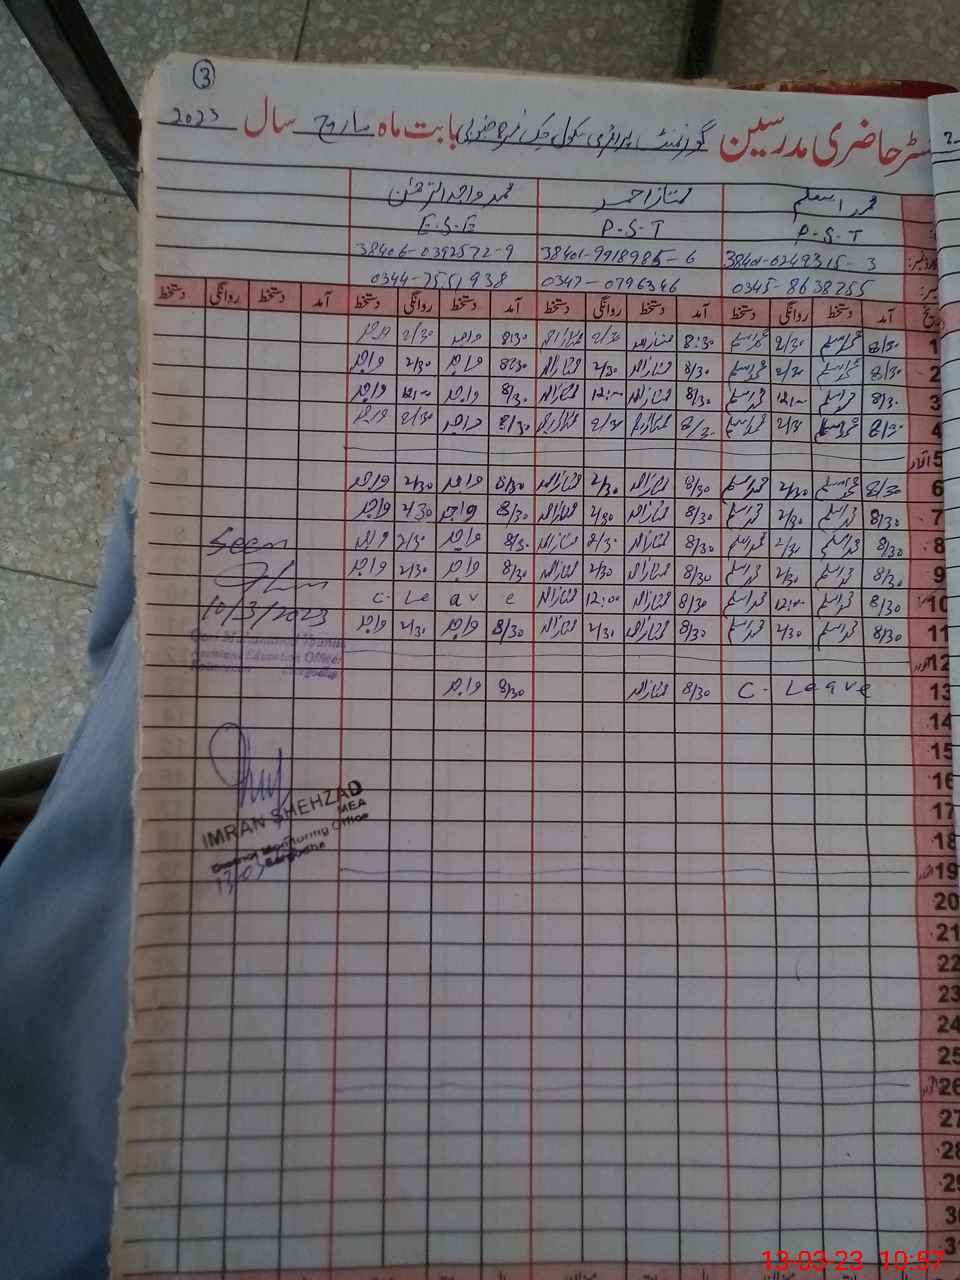 3
رجسٹر حاضری مدرسین گورنمنٹ پرائمری سکول چک نمبر جنوبی بابت ماہ مارچ سال 2023
محمد اسلم ممتاز احمد محمد واجد الرحمٰن
P.S.T P.S.T E.S.E
38401-0249315-3 38401-9918985-6 38406-0392572-9
0345-8638255 0347-0796346 0344-7551938
تاریخ آمد دستخط روانگی دستخط آمد دستخط روانگی دستخط آمد دستخط روانگی دستخط آمد دستخط روانگی دستخط
1 8/30 محمد اسلم 2/30 محمد اسلم 8:30 ممتاز احمد 2/30 ممتاز احمد 8:30 واجد 2/30 واجد
2 8/30 محمد اسلم 2/30 محمد اسلم 8/30 ممتاز احمد 2/30 ممتاز احمد 8:30 واجد 2/30 واجد
3 8/30 محمد اسلم 12:00 محمد اسلم 8/30 ممتاز احمد 12:00 ممتاز احمد 8/30 واجد 12:00 واجد
4 8/30 محمد اسلم 2/30 محمد اسلم 8/30 ممتاز احمد 2/30 ممتاز احمد 8/30 واجد 2/30 واجد
5 اتوار
6 8/30 محمد اسلم 2/30 محمد اسلم 8/30 ممتاز احمد 2/30 ممتاز احمد 8/30 واجد 2/30 واجد
7 8/30 محمد اسلم 2/30 محمد اسلم 8/30 ممتاز احمد 2/30 ممتاز احمد 8/30 واجد 2/30 واجد
8 8/30 محمد اسلم 2/30 محمد اسلم 8/30 ممتاز احمد 2/30 ممتاز احمد 8/30 واجد 2/30 واجد
9 8/30 محمد اسلم 2/30 محمد اسلم 8/30 ممتاز احمد 2/30 ممتاز احمد 8/30 واجد 2/30 واجد
10 8/30 محمد اسلم 12:00 محمد اسلم 8/30 ممتاز احمد 12:00 ممتاز احمد C. Leave
11 8/30 محمد اسلم 2/30 محمد اسلم 8/30 ممتاز احمد 2/30 ممتاز احمد 8/30 واجد 2/30 واجد
12 اتوار
13 C. Leave 8/30 ممتاز احمد 8/30 واجد
14
15
16
17
18
19 اتوار
20
21
22
23
24
25
26 اتوار
27
28
29
30
31
Seen
10/3/2023
Education Officer
IMRAN SHEHZAD
MEA
District Monitoring Office
Sargodha
13-03
13-03-23 10:57